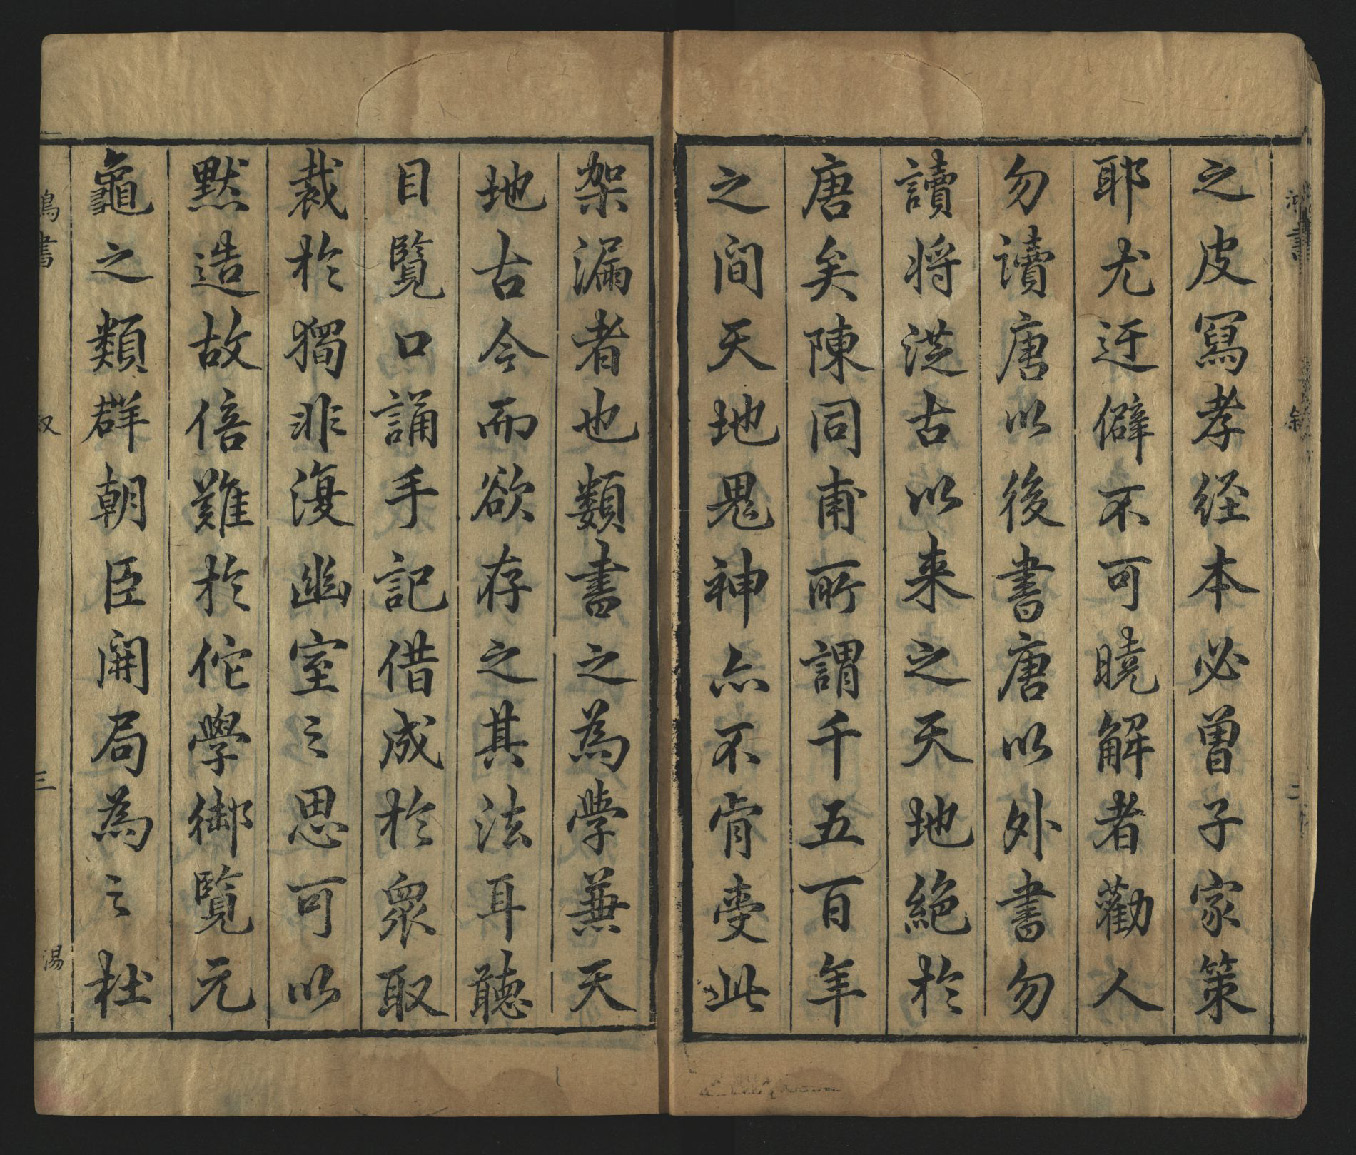 之皮寫孝經本必曽子家策
耶尤迂僻不可曉解者勸人
勿讀唐以後書唐以外書勿
讀将洪古以来之天地絶於
唐矣陳同甫所謂千五百年
之間天地鬼神亦不肯受此
架漏者也類書之為學兼天
地古今而欲存之其法耳聽
目覽口誦手記借成於衆取
裁於獨非澓幽室之思可以
默造故倍難於佗學御覽元
龜之類群朝臣開局為之杜
鴻書
叙
三
湯